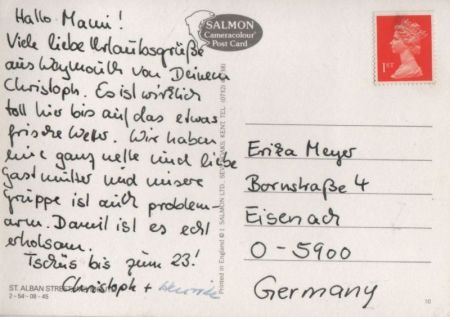 Hallo Mami!
Viele liebe Urlaubsgrüße
aus Weymouth von Deinem
Christoph. Es ist wirklich
toll hier bis auf das etwas
frische Wetter. Wir haben
eine ganz nette und liebe
Gastmutter und unsere
Gruppe ist auch problem-
arm. Damit ist es echt
erholsam.
Tschüs bis zum 23!
Christoph +
ST. ALBAN STREET
2-54-08-45
SALMON
Cameracolour
Post Card
Printed in England © J. SALMON LTD., SEVENOAKS, KENT. TEL. (0732)
1ST
Erika Meyer
Bornstraße 4
Eisenach
O-5900
Germany
10